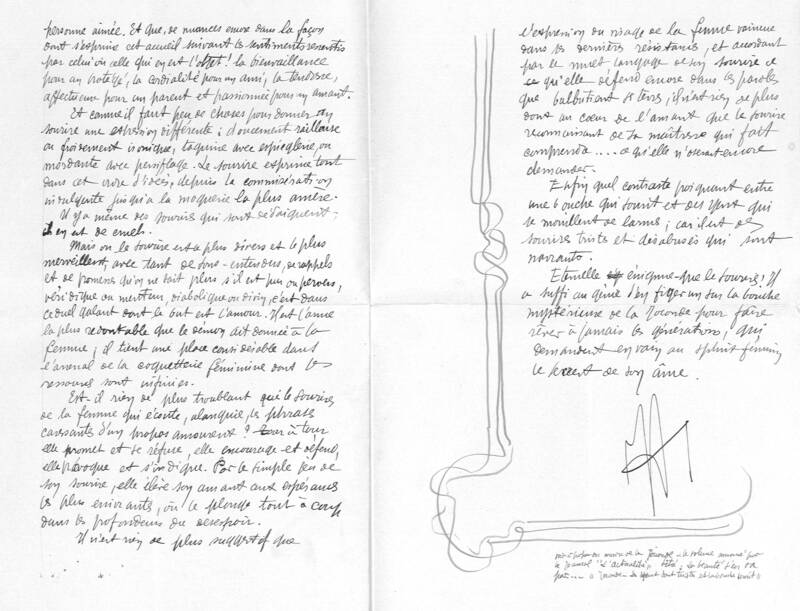 personne aimée. Et que de nuances encore dans la façon
dont s'exprime cet accueil suivant les sentiments ressentis
par celui ou celle qui en est l'objet ! la bienveillance
pour un protégé, la cordialité pour un ami, la tendresse,
affectueuse pour un parent et passionnée pour un amant.
Et comme il faut peu de choses pour donner au
sourire une expression différente ; doucement railleuse
ou froidement ironique, taquine avec espièglerie, ou
mordante avec persiflage. Le sourire exprime tout
dans cet ordre d'idées, depuis la commisération
indulgente jusqu'à la moquerie la plus amère.
Il y a même des souris qui sont dédaigneux ;
il en est de cruels.
Mais où le sourire est le plus divers et le plus
merveilleux, avec tant de sous-entendus, de rappels
et de promesses qu'on ne sait plus s'il est pur ou pervers,
véridique ou menteur, diabolique ou divin, c'est dans
ce duel galant dont le but est l'amour. Il est l'arme
la plus redoutable que le démon ait donnée à la
femme ; il tient une place considérable dans
l'arsenal de la coquetterie féminine dont les
ressources sont infinies.
Est-il rien de plus troublant que le sourire
de la femme qui écoute, alanguie, les phrases
caressantes d'un propos amoureux ? tour à tour
elle promet et se refuse, elle encourage et défend,
elle provoque et s'indigne. Par le simple jeu de
son sourire, elle élève son amant aux espérances
les plus enivrantes, ou le plonge tout à coup
dans les profondeurs du désespoir.
Il n'est rien de plus suggestif que
l'expression du visage de la femme vaincue
dans ses dernières résistances, et accordant
par le muet langage de son sourire ce
ce qu'elle défend encore dans les paroles
que balbutient ses lèvres, il n'est rien de plus
doux au cœur de l'amant que le sourire
reconnaissant de sa maîtresse qui fait
comprendre .... ce qu'elle n'oserait encore
demander.
Enfin quel contraste poignant entre
une bouche qui sourit et des yeux qui
se mouillent de larmes ; car il est des
sourires tristes et désabusés qui sont
navrants.
Eternelle énigme que le sourire ! Il
a suffi au génie d'en figer un sur la bouche
mystérieuse de la Joconde pour faire
rêver à jamais les générations, qui
demandent en vain au sphinx féminin
le secret de son âme.